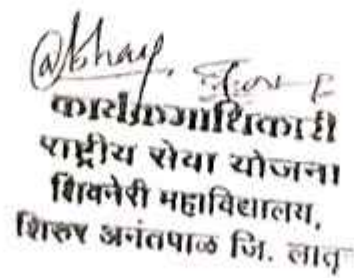 कार्यक्रमाधिकारी
राष्ट्रीय सेवा योजना
शिवनेरी महाविद्यालय,
शिरुर अनंतपाळ जि. लातू